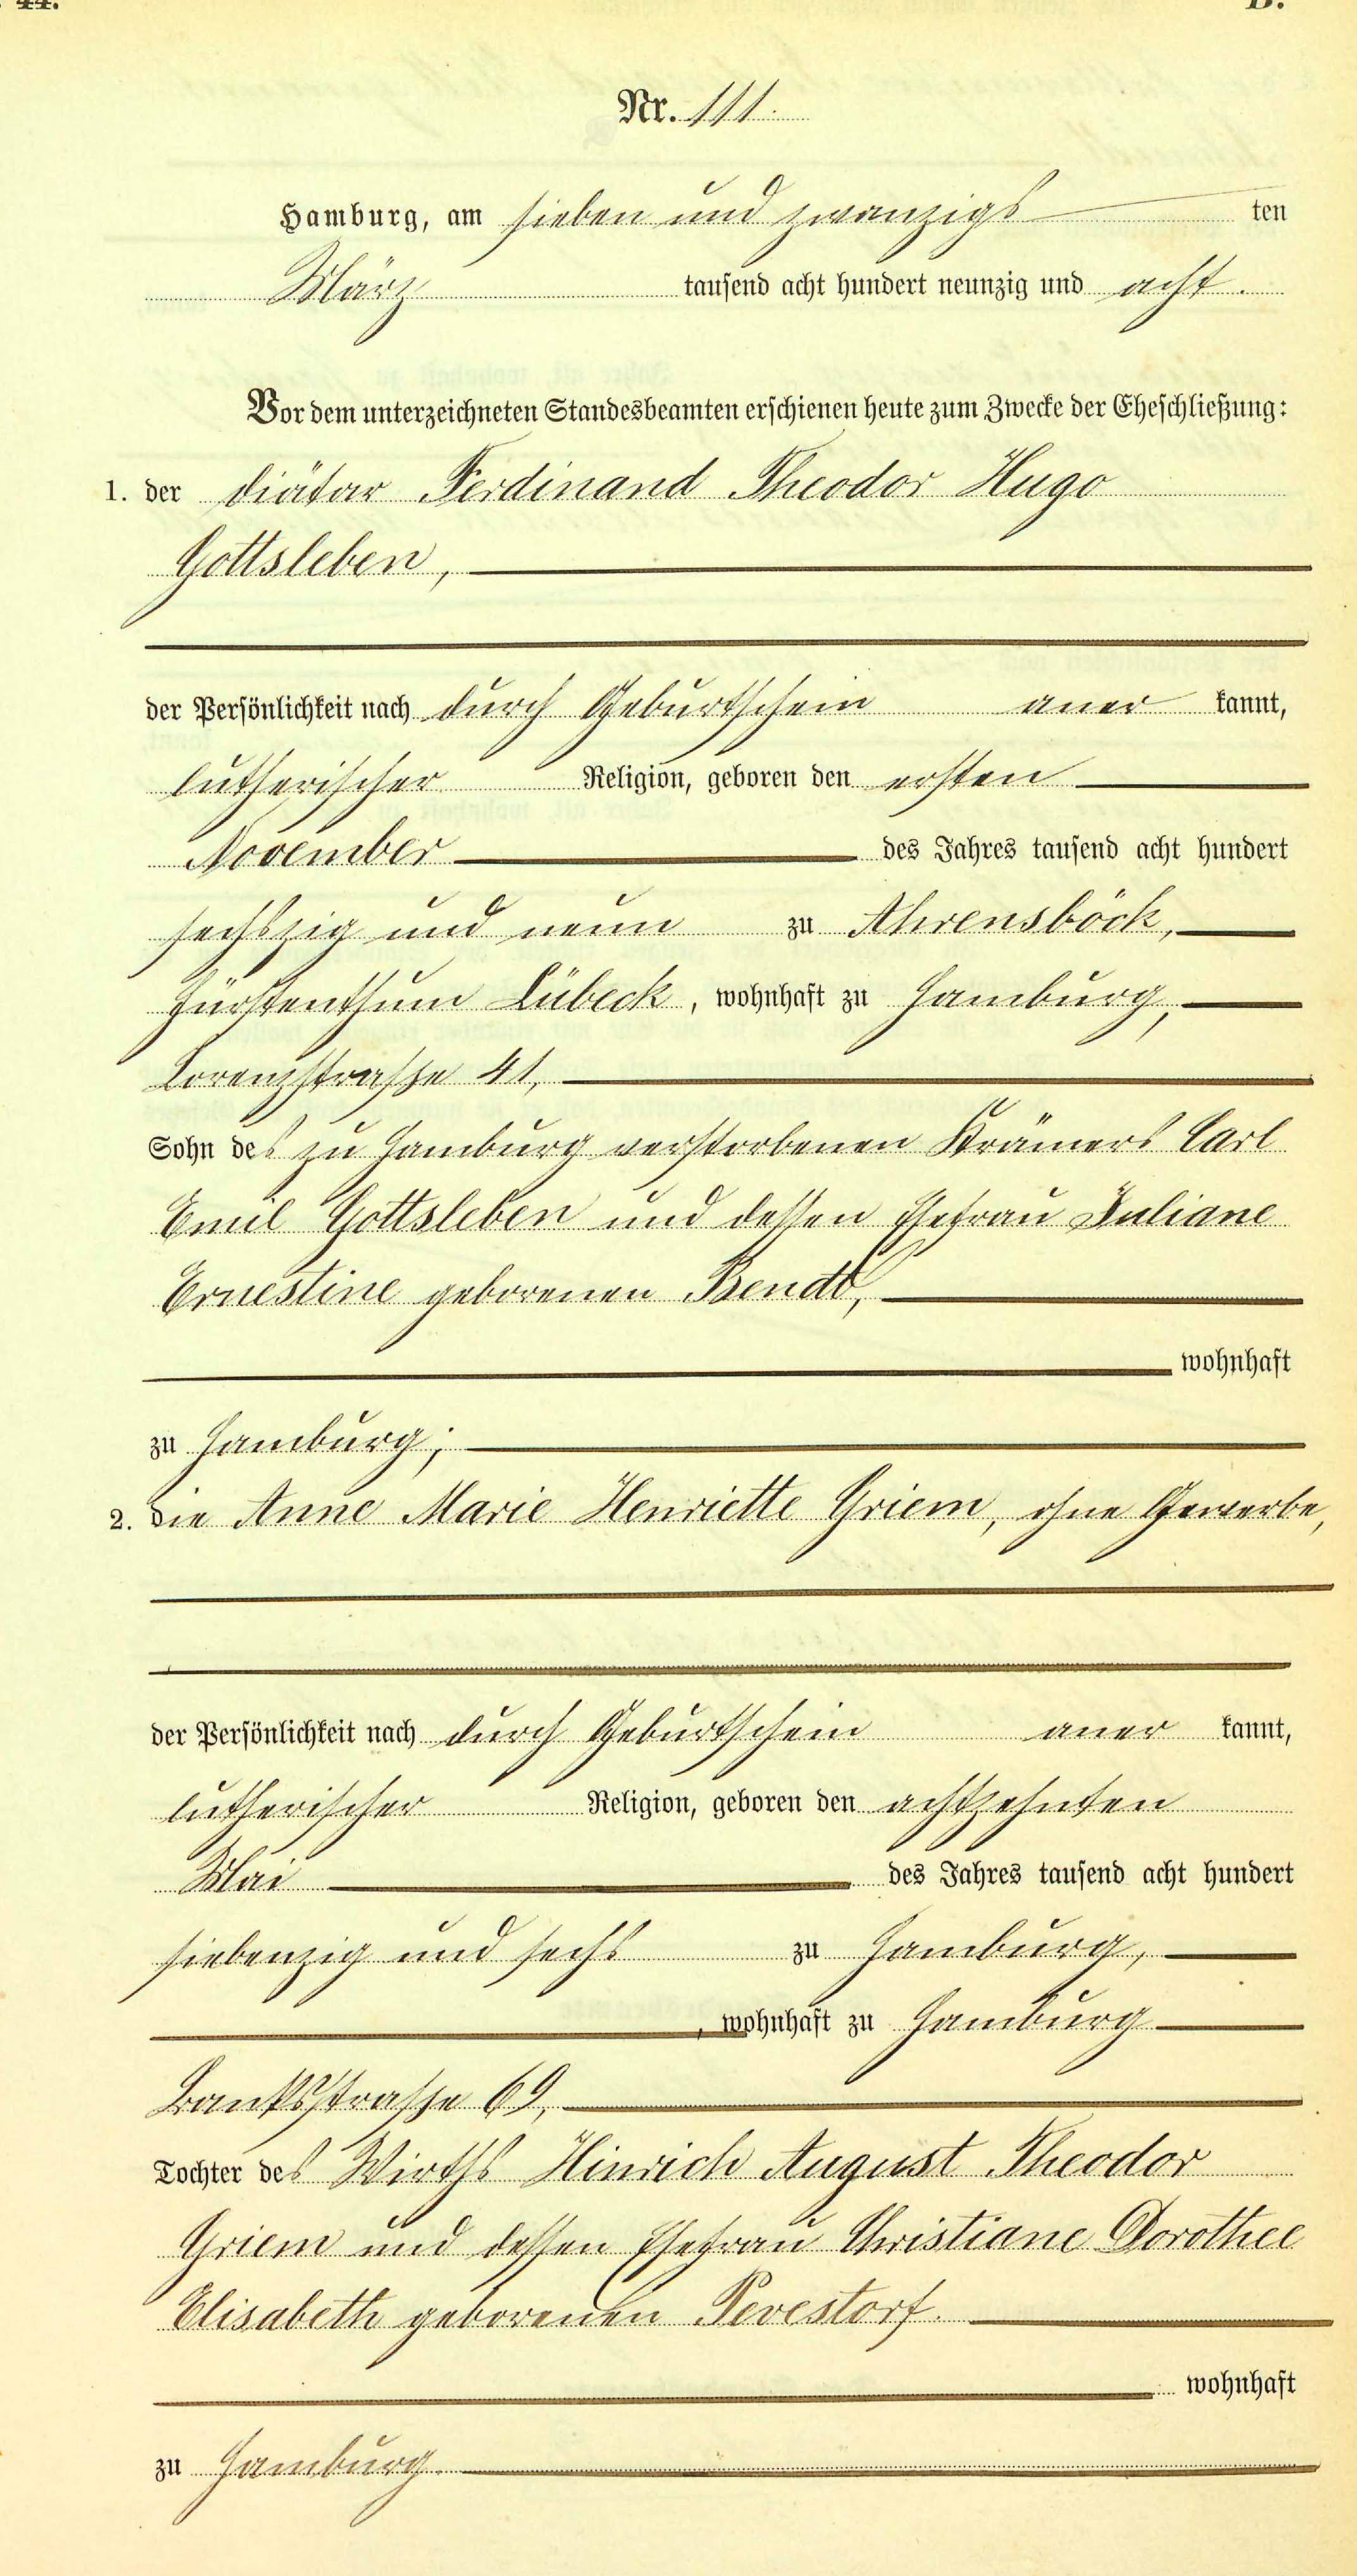 44.
B.
Nr. 111.
Hamburg, am sieben und zwanzigs ten
März tausend acht hundert neunzig und acht.
Vor dem unterzeichneten Standesbeamten erschienen heute zum Zwecke der Eheschließung:
1. der Diätar Ferdinand Theodor Hugo
Gottsleben,
der Persönlichkeit nach durch Geburtschein aner kannt,
lutherischer Religion, geboren den ersten
November des Jahres tausend acht hundert
sechszig und neun zu Ahrensböck,
Fürstenthum Lübeck, wohnhaft zu Hamburg,
Lorenzstraße 41,
Sohn des zu Hamburg verstorbenen Krämers Carl
Emil Gottsleben und dessen Ehefrau Juliane
Ernestine geborenen Bendt,
wohnhaft
zu Hamburg;
2. die Anne Marie Henriette Griem, ohne Gewerbe,
der Persönlichkeit nach durch Geburtschein aner kannt,
lutherischer Religion, geboren den achtzehnten
Mai des Jahres tausend acht hundert
siebenzig und sechs zu Hamburg,
, wohnhaft zu Hamburg
Banksstraße 69,
Tochter des Wirths Hinrich August Theodor
Griem und dessen Ehefrau Christiane Dorothee
Elisabeth geborenen Pevestorf.
wohnhaft
zu Hamburg.